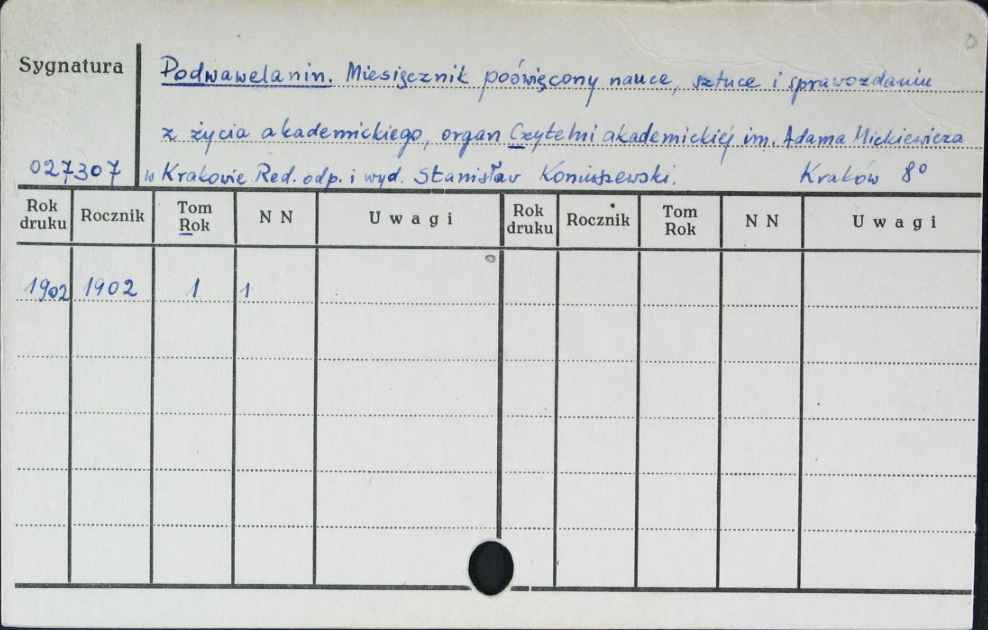 Sygnatura
Podwawelanin. Miesięcznik poświęcony nauce, sztuce i sprawozdaniu
z życia akademickiego, organ Czytelni akademickiej im. Adama Mickiewicza
027307 w Krakowie Red. odp. i wyd. Stanisław Koniuszewski. Kraków 8°
Rok druku Rocznik Tom Rok N N Uwagi Rok druku Rocznik Tom Rok N N Uwagi
1902 1902 1 1